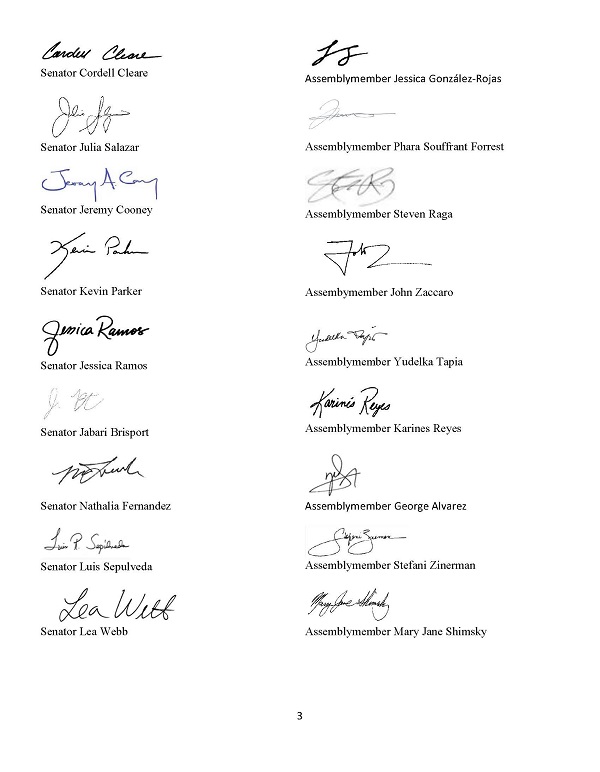 Cordell Cleare
Senator Cordell Cleare
Senator Julia Salazar
Jeremy A. Cooney
Senator Jeremy Cooney
Kevin Parker
Senator Kevin Parker
Jessica Ramos
Senator Jessica Ramos
J.
Senator Jabari Brisport
Senator Nathalia Fernandez
Luis R. Sepúlveda
Senator Luis Sepulveda
Lea Webb
Senator Lea Webb
Assemblymember Jessica González-Rojas
Assemblymember Phara Souffrant Forrest
Assemblymember Steven Raga
John Z
Assembymember John Zaccaro
Yudelka Tapia
Assemblymember Yudelka Tapia
Karinés Reyes
Assemblymember Karines Reyes
Assemblymember George Alvarez
Stefani Zinerman
Assemblymember Stefani Zinerman
Mary Jane Shimsky
Assemblymember Mary Jane Shimsky
3